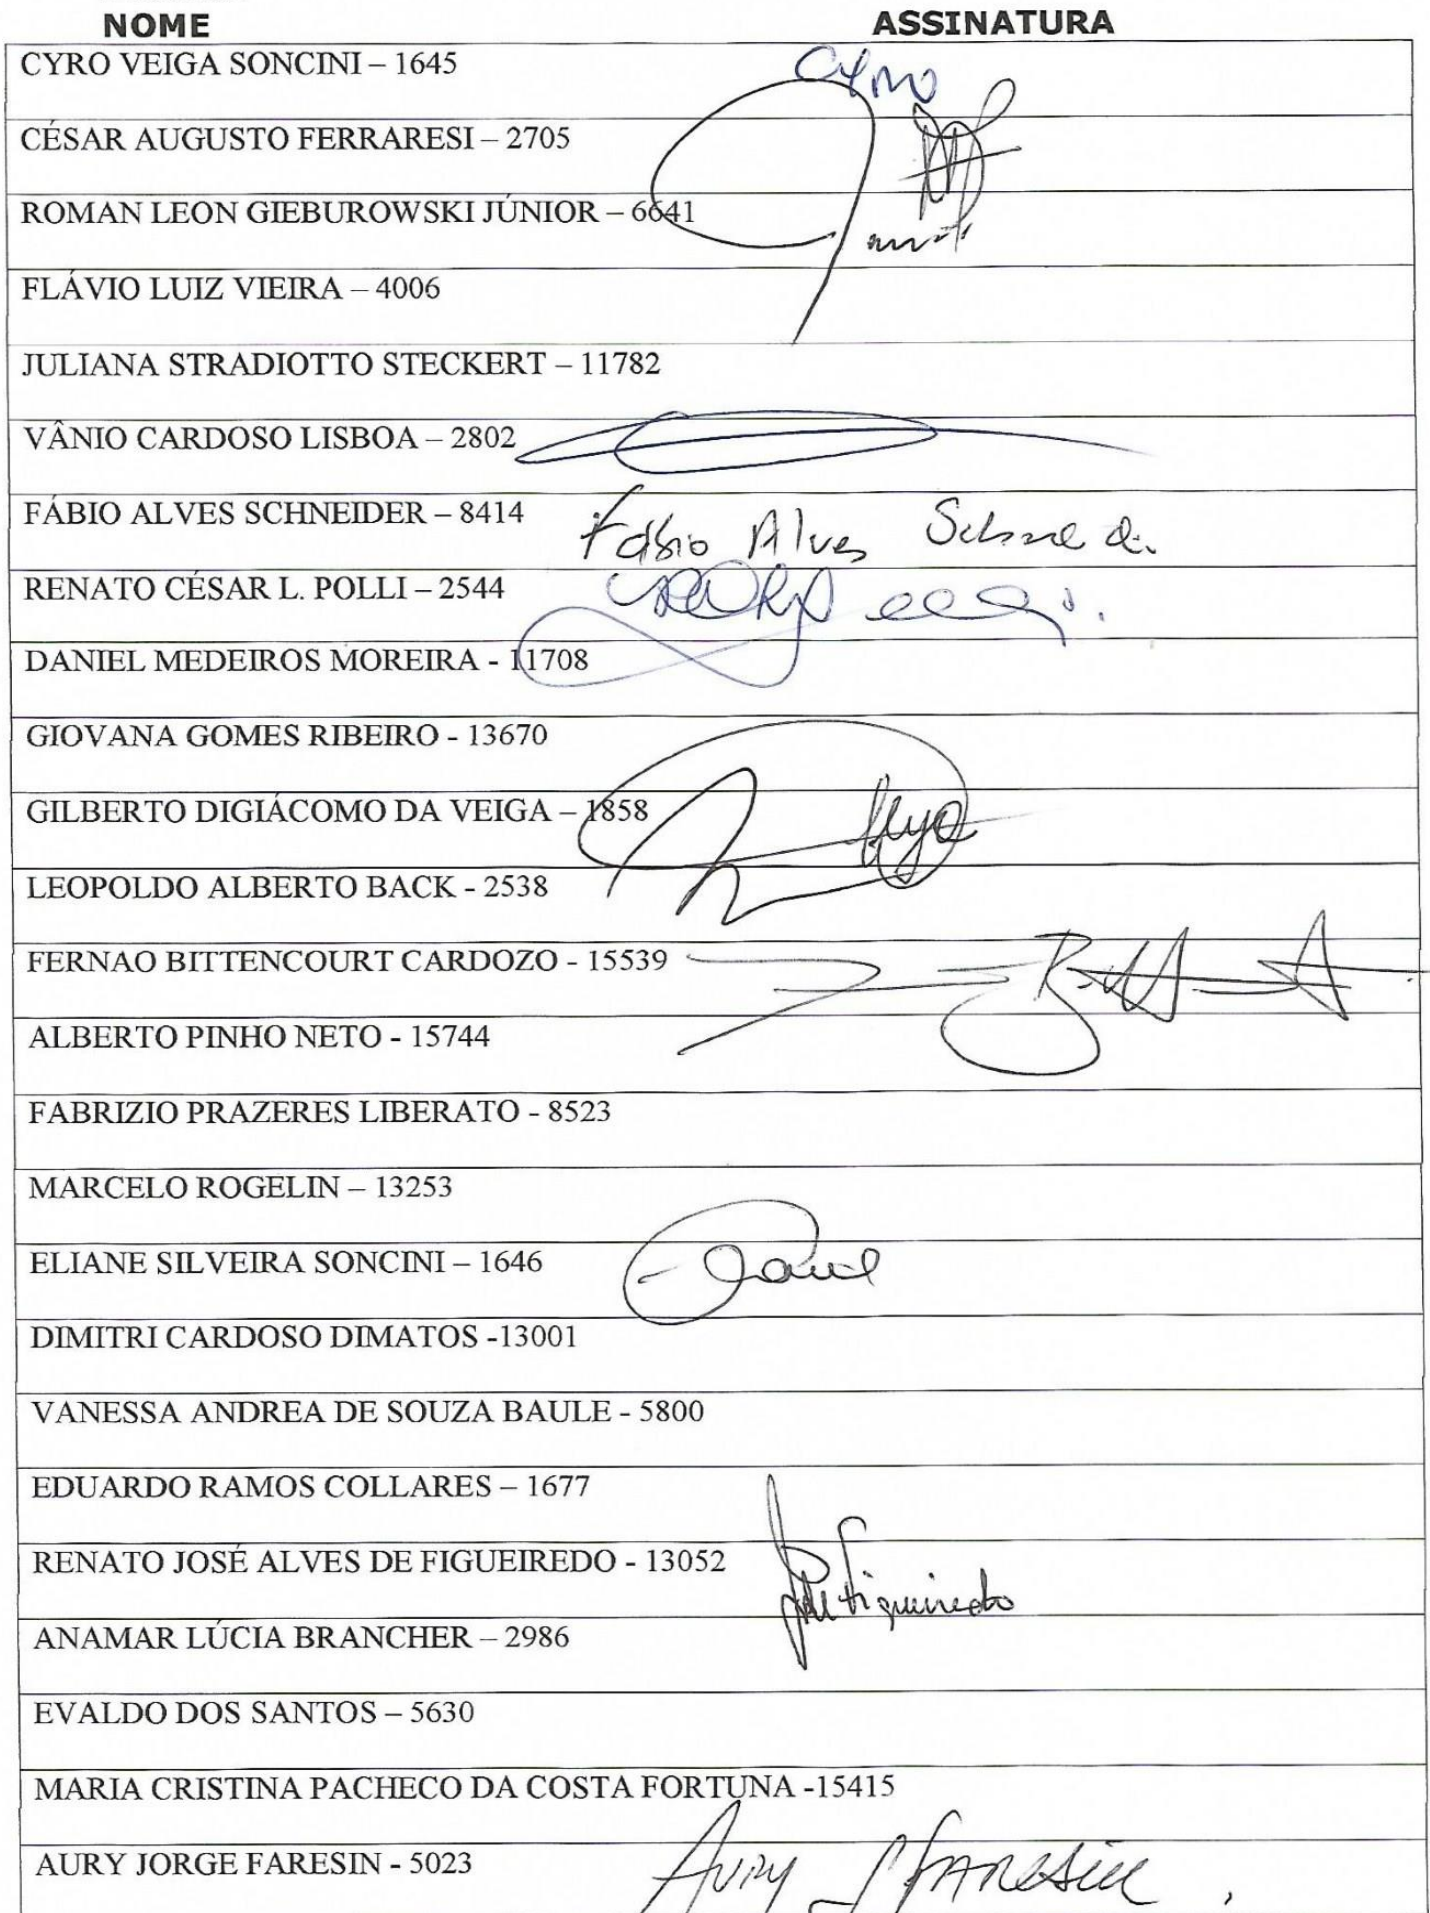 NOME ASSINATURA
CYRO VEIGA SONCINI – 1645 Cyro
CÉSAR AUGUSTO FERRARESI – 2705
ROMAN LEON GIEBUROWSKI JÚNIOR – 6641
FLÁVIO LUIZ VIEIRA – 4006
JULIANA STRADIOTTO STECKERT – 11782
VÂNIO CARDOSO LISBOA – 2802
FÁBIO ALVES SCHNEIDER – 8414 Fábio Alves Schneider
RENATO CÉSAR L. POLLI – 2544
DANIEL MEDEIROS MOREIRA - 11708
GIOVANA GOMES RIBEIRO - 13670
GILBERTO DIGIÁCOMO DA VEIGA – 1858
LEOPOLDO ALBERTO BACK - 2538
FERNAO BITTENCOURT CARDOZO - 15539
ALBERTO PINHO NETO - 15744
FABRIZIO PRAZERES LIBERATO - 8523
MARCELO ROGELIN – 13253
ELIANE SILVEIRA SONCINI – 1646
DIMITRI CARDOSO DIMATOS -13001
VANESSA ANDREA DE SOUZA BAULE - 5800
EDUARDO RAMOS COLLARES – 1677
RENATO JOSÉ ALVES DE FIGUEIREDO - 13052 Figueiredo
ANAMAR LÚCIA BRANCHER – 2986
EVALDO DOS SANTOS – 5630
MARIA CRISTINA PACHECO DA COSTA FORTUNA -15415
AURY JORGE FARESIN - 5023 AURY J FARESIN